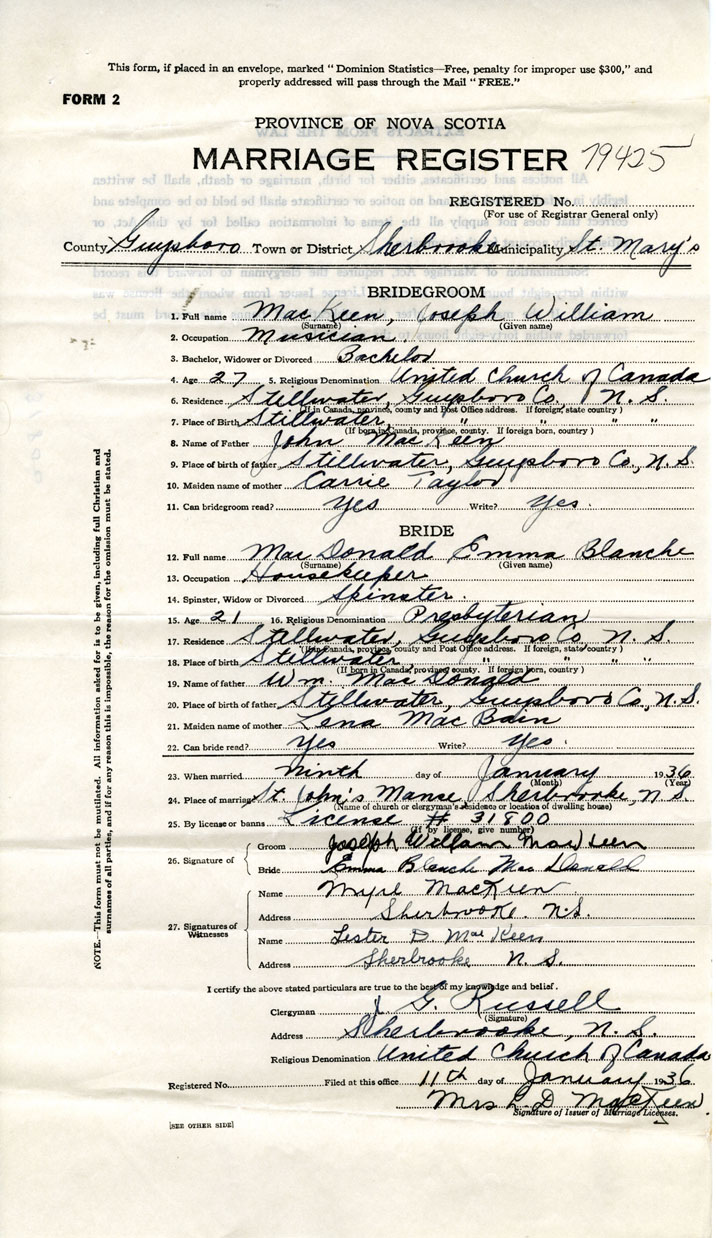 This form, if placed in an envelope, marked "Dominion Statistics—Free, penalty for improper use $300," and
properly addressed will pass through the Mail "FREE."
FORM 2
PROVINCE OF NOVA SCOTIA
MARRIAGE REGISTER 79425
REGISTERED No.
(For use of Registrar General only)
County Guysboro Town or District Sherbrooke Municipality St. Mary's
BRIDEGROOM
1. Full name MacKeen, Joseph William
(Surname) (Given name)
2. Occupation Musician.
3. Bachelor, Widower or Divorced Bachelor
4. Age 27 5. Religious Denomination United Church of Canada
6. Residence Stillwater, Guysboro Co., N. S.
(If in Canada, province, county and Post Office address. If foreign, state country)
7. Place of Birth Stillwater, " " "
(If born in Canada, province, county. If foreign born, country)
8. Name of Father John MacKeen
9. Place of birth of father Stillwater, Guysboro Co., N. S.
10. Maiden name of mother Carrie Taylor
11. Can bridegroom read? Yes Write? Yes.
BRIDE
12. Full name MacDonald Emma Blanche
(Surname) (Given name)
13. Occupation Housekeeper
14. Spinster, Widow or Divorced Spinster.
15. Age 21 16. Religious Denomination Presbyterian
17. Residence Stillwater, Guysboro Co, N. S.
(If in Canada, province, county and Post Office address. If foreign, state country)
18. Place of birth Stillwater, " " "
(If born in Canada, province, county. If foreign born, country)
19. Name of father Wm. MacDonald
20. Place of birth of father Stillwater, Guysboro Co., N.S.
21. Maiden name of mother Lena MacBain
22. Can bride read? Yes Write? Yes.
23. When married ninth day of January 1936
(Month) (Year)
24. Place of marriage St. John's Manse, Sherbrooke, N S
(Name of church or clergyman's residence or location of dwelling house)
25. By license or banns License # 31800
(If by license, give number)
26. Signature of Groom Joseph William MacKeen
Bride Emma Blanche MacDonald
27. Signatures of Witnesses Name Myrl MacKeen
Address Sherbrooke. N.S.
Name Lester D MacKeen
Address Sherbrooke N. S.
NOTE.—This form must not be mutilated. All information asked for is to be given, including full Christian and
surnames of all parties, and if for any reason this is impossible, the reason for the omission must be stated.
I certify the above stated particulars are true to the best of my knowledge and belief.
Clergyman G. Russell
(Signature)
Address Sherbrooke, N. S.
Religious Denomination United Church of Canada
Registered No. Filed at this office 11th day of January 1936
Mrs L. D MacKeen
Signature of Issuer of Marriage Licenses.
[SEE OTHER SIDE]